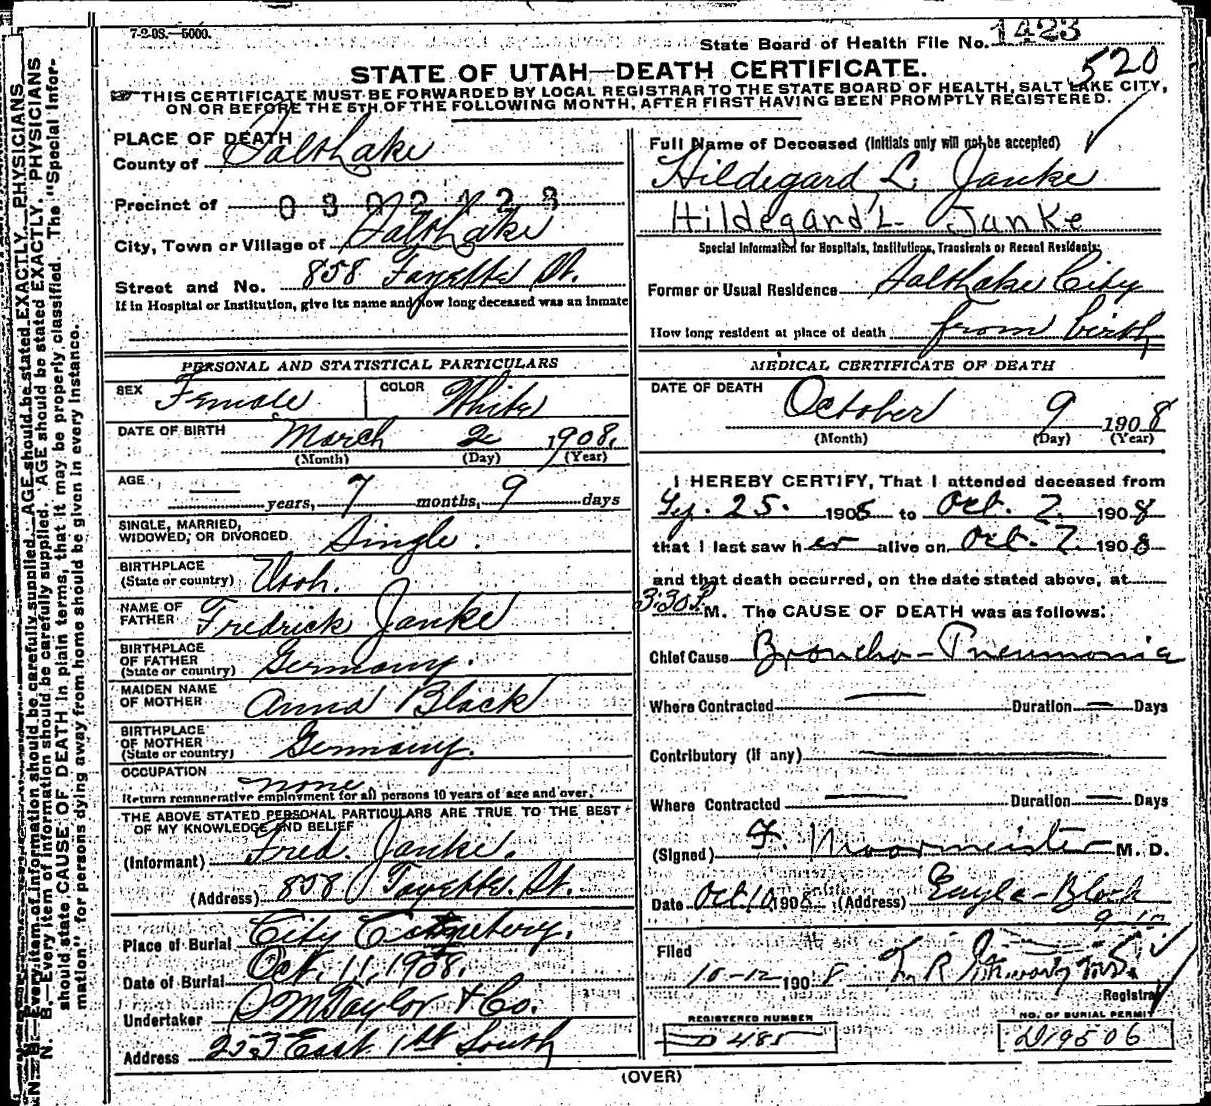 7-2-08.—5000.
State Board of Health File No. 1423
520
STATE OF UTAH—DEATH CERTIFICATE.
THIS CERTIFICATE MUST BE FORWARDED BY LOCAL REGISTRAR TO THE STATE BOARD OF HEALTH, SALT LAKE CITY,
ON OR BEFORE THE 5TH OF THE FOLLOWING MONTH, AFTER FIRST HAVING BEEN PROMPTLY REGISTERED.
PLACE OF DEATH
County of Salt Lake
Precinct of
City, Town or Village of Salt Lake
Street and No. 858 Fayette St.
If in Hospital or Institution, give its name and how long deceased was an inmate
Full Name of Deceased (Initials only will not be accepted)
Hildegard L. Janke
Hildegard L. Janke
Special Information for Hospitals, Institutions, Transients or Recent Residents:
Former or Usual Residence Salt Lake City
How long resident at place of death from birth
PERSONAL AND STATISTICAL PARTICULARS
SEX Female COLOR White
DATE OF BIRTH March 2 1908.
(Month) (Day) (Year)
AGE — years, 7 months, 9 days
SINGLE, MARRIED,
WIDOWED, OR DIVORCED Single.
BIRTHPLACE
(State or country) Utah.
NAME OF
FATHER Fredrick Janke
BIRTHPLACE
OF FATHER
(State or country) Germany.
MAIDEN NAME
OF MOTHER Anna Black
BIRTHPLACE
OF MOTHER
(State or country) Germany.
OCCUPATION none
Return remunerative employment for all persons 10 years of age and over.
THE ABOVE STATED PERSONAL PARTICULARS ARE TRUE TO THE BEST
OF MY KNOWLEDGE AND BELIEF
(Informant) Fred. Janke.
(Address) 858 Fayette. St.
Place of Burial City Cemetery.
Date of Burial Oct. 11, 1908.
Undertaker S M Taylor & Co.
Address 253 East 1st South
MEDICAL CERTIFICATE OF DEATH
DATE OF DEATH October 9 1908
(Month) (Day) (Year)
I HEREBY CERTIFY, That I attended deceased from
25. 1908 to Oct. 7. 1908
that I last saw her alive on Oct. 7. 1908
and that death occurred, on the date stated above, at
3:30 P M. The CAUSE OF DEATH was as follows:
Chief Cause Broncho-Pneumonia
Where Contracted — Duration — Days
Contributory (if any) —
Where Contracted — Duration — Days
(Signed) F. Moormeister M. D.
Date Oct. 10 1908 (Address) Eagle-Block
Filed
10-12 1908
Registrar
REGISTERED NUMBER
D 485
NO. OF BURIAL PERMIT
D19506
(OVER)
N. B.—Every item of information should be carefully supplied. AGE should be stated EXACTLY. PHYSICIANS
should state CAUSE OF DEATH in plain terms, that it may be properly classified. The "Special Infor-
mation" for persons dying away from home should be given in every instance.